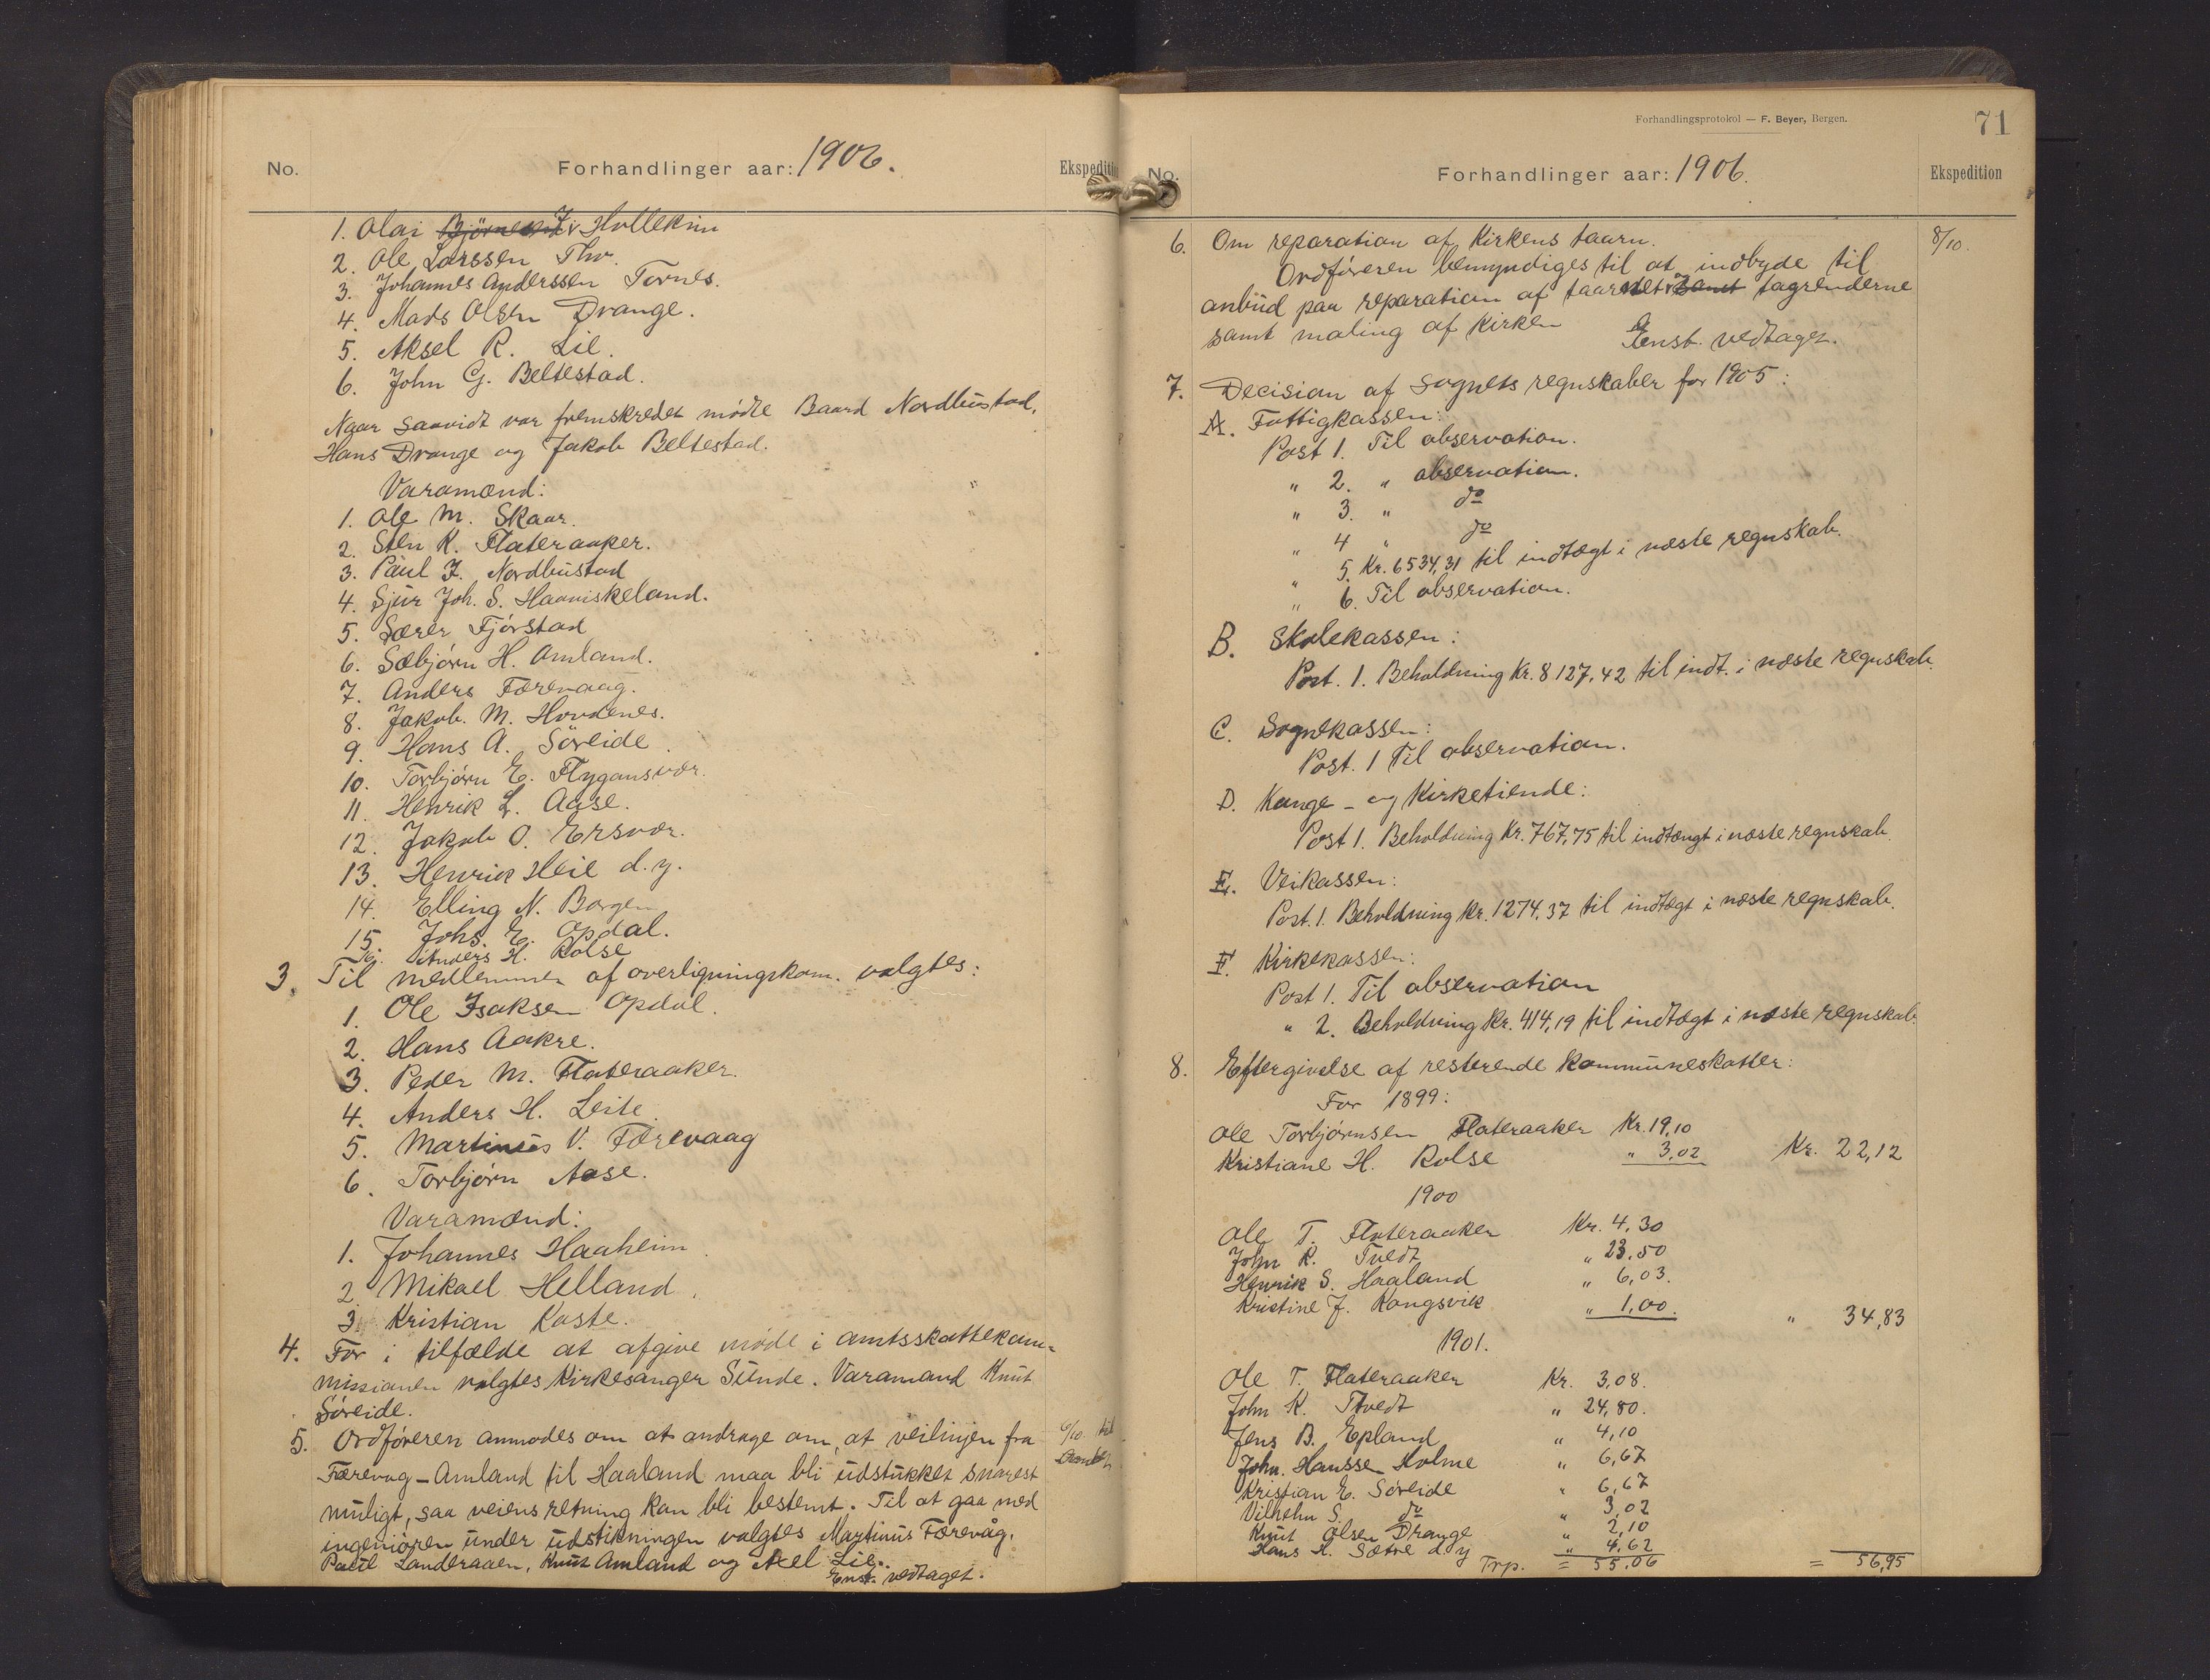 No.
Forhandlinger aar: 1906.
Ekspedition
1. Olai Hollekim
2. Ole Larssen Tho.
3. Johannes Anderssen Tornes.
4. Mads Olsen Drange.
5. Aksel R. Lie.
6. John G. Beltestad.
Naar saavidt var fremskredet mødte Baard Nordbustad,
Hans Drange og Jakob Beltestad.
Varamænd:
1. Ole M. Skaar.
2. Sten K. Flateraaker.
3. Paul J. Nordbustad
4. Sjur Joh. S. Haaviskeland.
5. Særer Fjørstad
6. Sæbjørn H. Amland.
7. Anders Færevaag.
8. Jakob. M. Hovdenes.
9. Hans A. Søreide.
10. Torbjørn E. Flygansvær.
11. Henrik L. Aase.
12. Jakob O. Ersvær.
13. Henrik Heie d.y.
14. Elling N. Borgen
15. Johs. E. Opdal.
16. Anders H. Rolse
3. Til medlemmer af overligningskom. valgtes:
1. Ole Isaksen Opdal.
2. Hans Aakre.
3. Peder M. Flateraaker.
4. Anders H. Leite.
5. Martinus V. Færevaag
6. Torbjørn Aase.
Varamænd:
1. Johannes Haaheim.
2. Mikael Helland.
3. Kristian Koste.
4. For i tilfælde at afgive møde i amtsskattekom=
missionen valgtes Kirkesanger Sunde. Varamand Knut
Søreide.
5. Ordføreren anmodes om at andrage om, at veilinjen fra
6/10 til
Færevag - Amland til Haaland maa bli udstukket snarest
muligt, saa veiens retning kan bli bestemt. Til at gaa med
ingeniøren under udstikningen valgtes Martinus Færevåg,
Paul Landeraaen, Knut Amland og Axel Lie.
Enst. vedtaget.
Forhandlingsprotokol — F. Beyer, Bergen.
71
No.
Forhandlinger aar: 1906.
Ekspedition
6. Om reparation af Kirkens taarn.
8/10.
Ordføreren bemyndiges til at indbyde til
anbud paa reparation af taarnet samt tagrenderne
samt maling af Kirken
Enst. vedtaget.
7. Decision af sognets regnskaber for 1905:
A. Fattigkassen:
Post 1. Til observation.
" 2. " observation.
" 3. " do
" 4 " do
" 5. Kr. 6534,31 til indtægt i næste regnskab.
" 6. Til observation.
B. Skolekassen:
Post. 1. Beholdning Kr. 8127,42 til indt. i næste regnskab.
C. Sognekassen:
Post. 1 Til observation.
D. Konge- og Kirketiende:
Post 1. Beholdning Kr. 767,75 til indtængt i næste regnskab.
E. Veikassen:
Post. 1. Beholdning Kr. 1274,37 til indtægt i næste regnskab.
F. Kirkekassen:
Post 1. Til observation
" 2. Beholdning Kr. 414,19 til indtægt i næste regnskab.
8. Eftergivelse af resterende kommuneskatter:
For 1899:
Ole Torbjørnsen Flateraaker Kr. 19,10
Kristiane H. Rolse " 3,02 Kr. 22,12
1900
Ole T. Flateraaker Kr. 4,30
John K. Tvedt " 23,50
Henrik S. Haaland " 6,03.
Kristine J. Kongsvik " 1,00. " 34,83
1901.
Ole T. Flateraaker Kr. 3,08.
John K. Tvedt " 24,80.
Jens B. Epland " 4,10
John. Hanssen Holme " 6,67
Kristian E. Søreide " 6,67
Vilhelm S. do " 3,02
Knut Olsen Drange " 2,10
Hans H. Sætre d y " 4,62
Trp. = 55,06 = 56,95